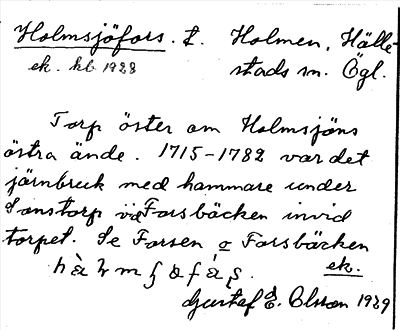 Holmsjöfors. t. Holmen, Hälle-
ek. kb 1928 stads sn. Ögl.
Torp öster om Holmsjöns
östra ände. 1715-1782 var det
järnbruk med hammare under
Sonstorp vid Forsbäcken invid
torpet. Se Forsen o Forsbäcken
ek.
Gustaf E. Olsson 1929